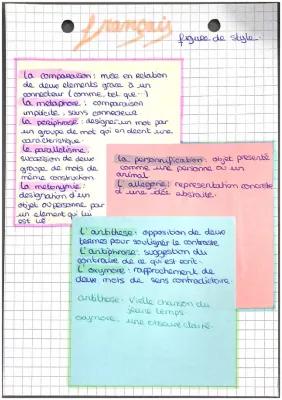 français
figures de style.
la comparaison : mise en relation
de deux elements grace à un
connecteur (comme, tel que...)
la métaphore : comparaison
implicite, sans connecteur
la periphrase : designer un mot par
un groupe de mot qui en decrit une
caractéristique.
le parallélisme :
succession de deux
groupe de mots de
même construction
la metonymie :
designation d'un
objet ou personne par
un element qui lui
est lié
la personnification : objet presenté
comme une personne ou un
animal
l'allegorie : representation concrete
d'une idée abstraite.
L'antithèse : opposition de deux
termes pour souligner le contraste
L'antiphrase : suggestion du
contraire de ce qui est ecrit.
L'oxymore : rapprochement de
deux mots de sens contradictoire.
antithèse : vielle chanson du
jeune temps
oxymore : une obscure clarté.